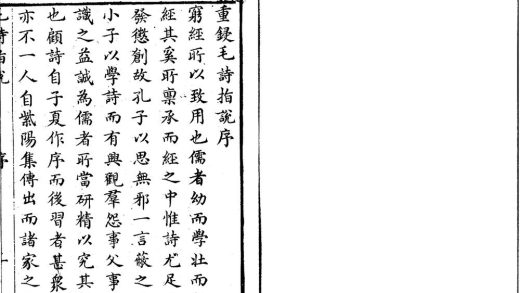 重鋟毛詩指說序
窮經所以致用也儒者幼而學壯而
經其奚所稟承而經之中惟詩尤足
發懲創故孔子以思無邪一言蔽之
小子以學詩而有興觀羣怨事父事
識之益誠為儒者所當研精以究其
也顧詩自子夏作序而後習者甚衆
亦不一人自紫陽集傳出而諸家之
毛詩指說 序 一